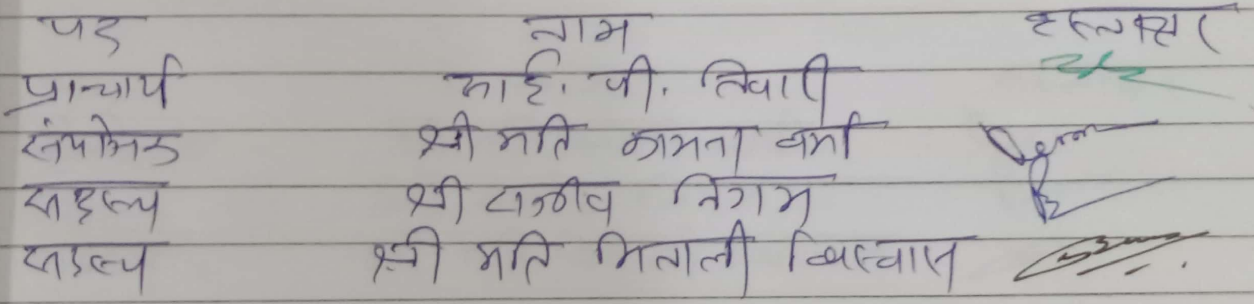 पद नाम हस्ताक्षर
प्राचार्य आई. पी. तिवारी
संयोजक श्री मति कामना वर्मा
सदस्य श्री राजीव निगम
सदस्य श्री मति मिताली विस्वास